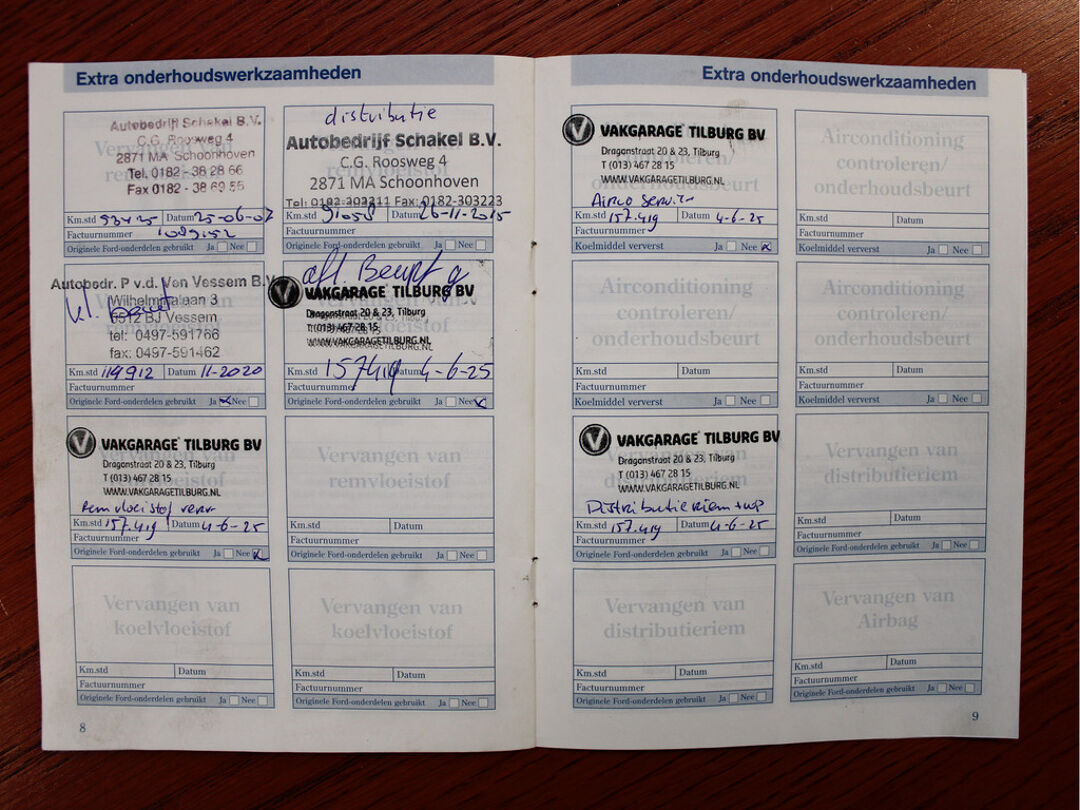 Extra onderhoudswerkzaamheden
Autobedrijf Schakel B.V.
C.G. Roosweg 4
2871 MA Schoonhoven
Tel. 0182 - 38 28 66
Fax 0182 - 38 60 55
Km.std 93425 Datum 25-06-07
Factuurnummer 1089152
Originele Ford-onderdelen gebruikt Ja Nee
distributie
Autobedrijf Schakel B.V.
C.G. Roosweg 4
2871 MA Schoonhoven
Tel: 0182-303211 Fax: 0182-303223
Km.std 91058 Datum 26-11-2015
Factuurnummer
Originele Ford-onderdelen gebruikt Ja Nee
Autobedr. P v.d. Ven Vessem B.V.
kl. beurt
Wilhelminalaan 3
5512 BJ Vessem
tel: 0497-591766
fax: 0497-591462
Km.std 119912 Datum 11-2020
Factuurnummer
Originele Ford-onderdelen gebruikt Ja Nee
afl. Beurt g
VAKGARAGE TILBURG BV
Dragonstraat 20 & 23, Tilburg
T (013) 467 28 15
WWW.VAKGARAGETILBURG.NL
Km.std 157419 Datum 4-6-25
Factuurnummer
Originele Ford-onderdelen gebruikt Ja Nee
VAKGARAGE TILBURG BV
Dragonstraat 20 & 23, Tilburg
T (013) 467 28 15
WWW.VAKGARAGETILBURG.NL
Remvloeistof verv.
Km.std 157.419 Datum 4-6-25
Factuurnummer
Originele Ford-onderdelen gebruikt Ja Nee
Vervangen van
remvloeistof
Km.std Datum
Factuurnummer
Originele Ford-onderdelen gebruikt Ja Nee
Vervangen van
koelvloeistof
Km.std Datum
Factuurnummer
Originele Ford-onderdelen gebruikt Ja Nee
Vervangen van
koelvloeistof
Km.std Datum
Factuurnummer
Originele Ford-onderdelen gebruikt Ja Nee
8
Extra onderhoudswerkzaamheden
VAKGARAGE TILBURG BV
Dragonstraat 20 & 23, Tilburg
T (013) 467 28 15
WWW.VAKGARAGETILBURG.NL
Airco Service
Km.std 157.419 Datum 4-6-25
Factuurnummer
Koelmiddel ververst Ja Nee
Airconditioning
controleren/
onderhoudsbeurt
Km.std Datum
Factuurnummer
Koelmiddel ververst Ja Nee
Airconditioning
controleren/
onderhoudsbeurt
Km.std Datum
Factuurnummer
Koelmiddel ververst Ja Nee
Airconditioning
controleren/
onderhoudsbeurt
Km.std Datum
Factuurnummer
Koelmiddel ververst Ja Nee
VAKGARAGE TILBURG BV
Dragonstraat 20 & 23, Tilburg
T (013) 467 28 15
WWW.VAKGARAGETILBURG.NL
Distributieriem + wp
Km.std 157.419 Datum 4-6-25
Factuurnummer
Originele Ford-onderdelen gebruikt Ja Nee
Vervangen van
distributieriem
Km.std Datum
Factuurnummer
Originele Ford-onderdelen gebruikt Ja Nee
Vervangen van
distributieriem
Km.std Datum
Factuurnummer
Originele Ford-onderdelen gebruikt Ja Nee
Vervangen van
Airbag
Km.std Datum
Factuurnummer
Originele Ford-onderdelen gebruikt Ja Nee
9